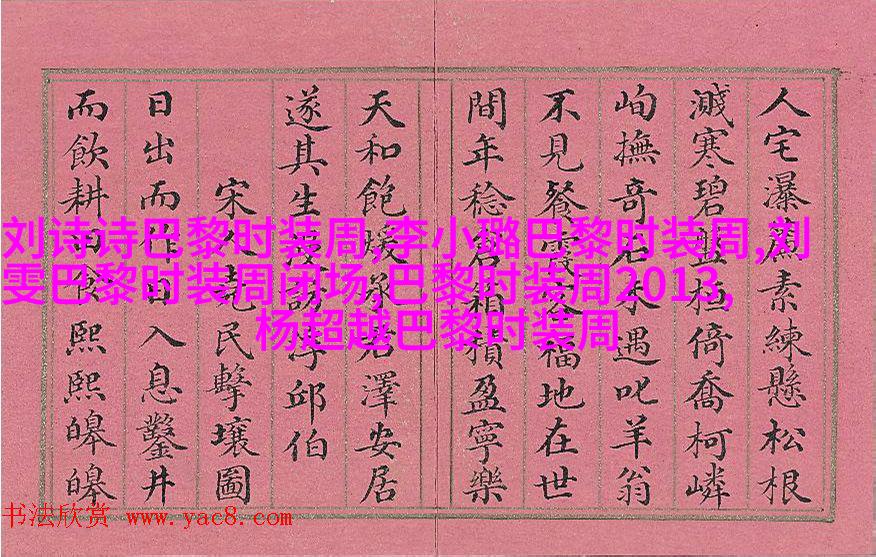 人宅瀑素練懸松根
濺寒碧盤桓倚喬柯嶙
峋撫奇石未遇叱羊翁
不見餐霞客福地在世
間年稔倉箱積盈寧樂
天和飽煖承君澤安居
遂其生邱伯
宋人堯民擊壤圖
日出而作日入息鑿井
而飲耕田食熙熙皞皞
刘诗诗巴黎时装周,李小璐巴黎时装周,刘
雯巴黎时装周闭场,巴黎时装周2013,
杨超越巴黎时装周
书法欣赏 www.yac8.com